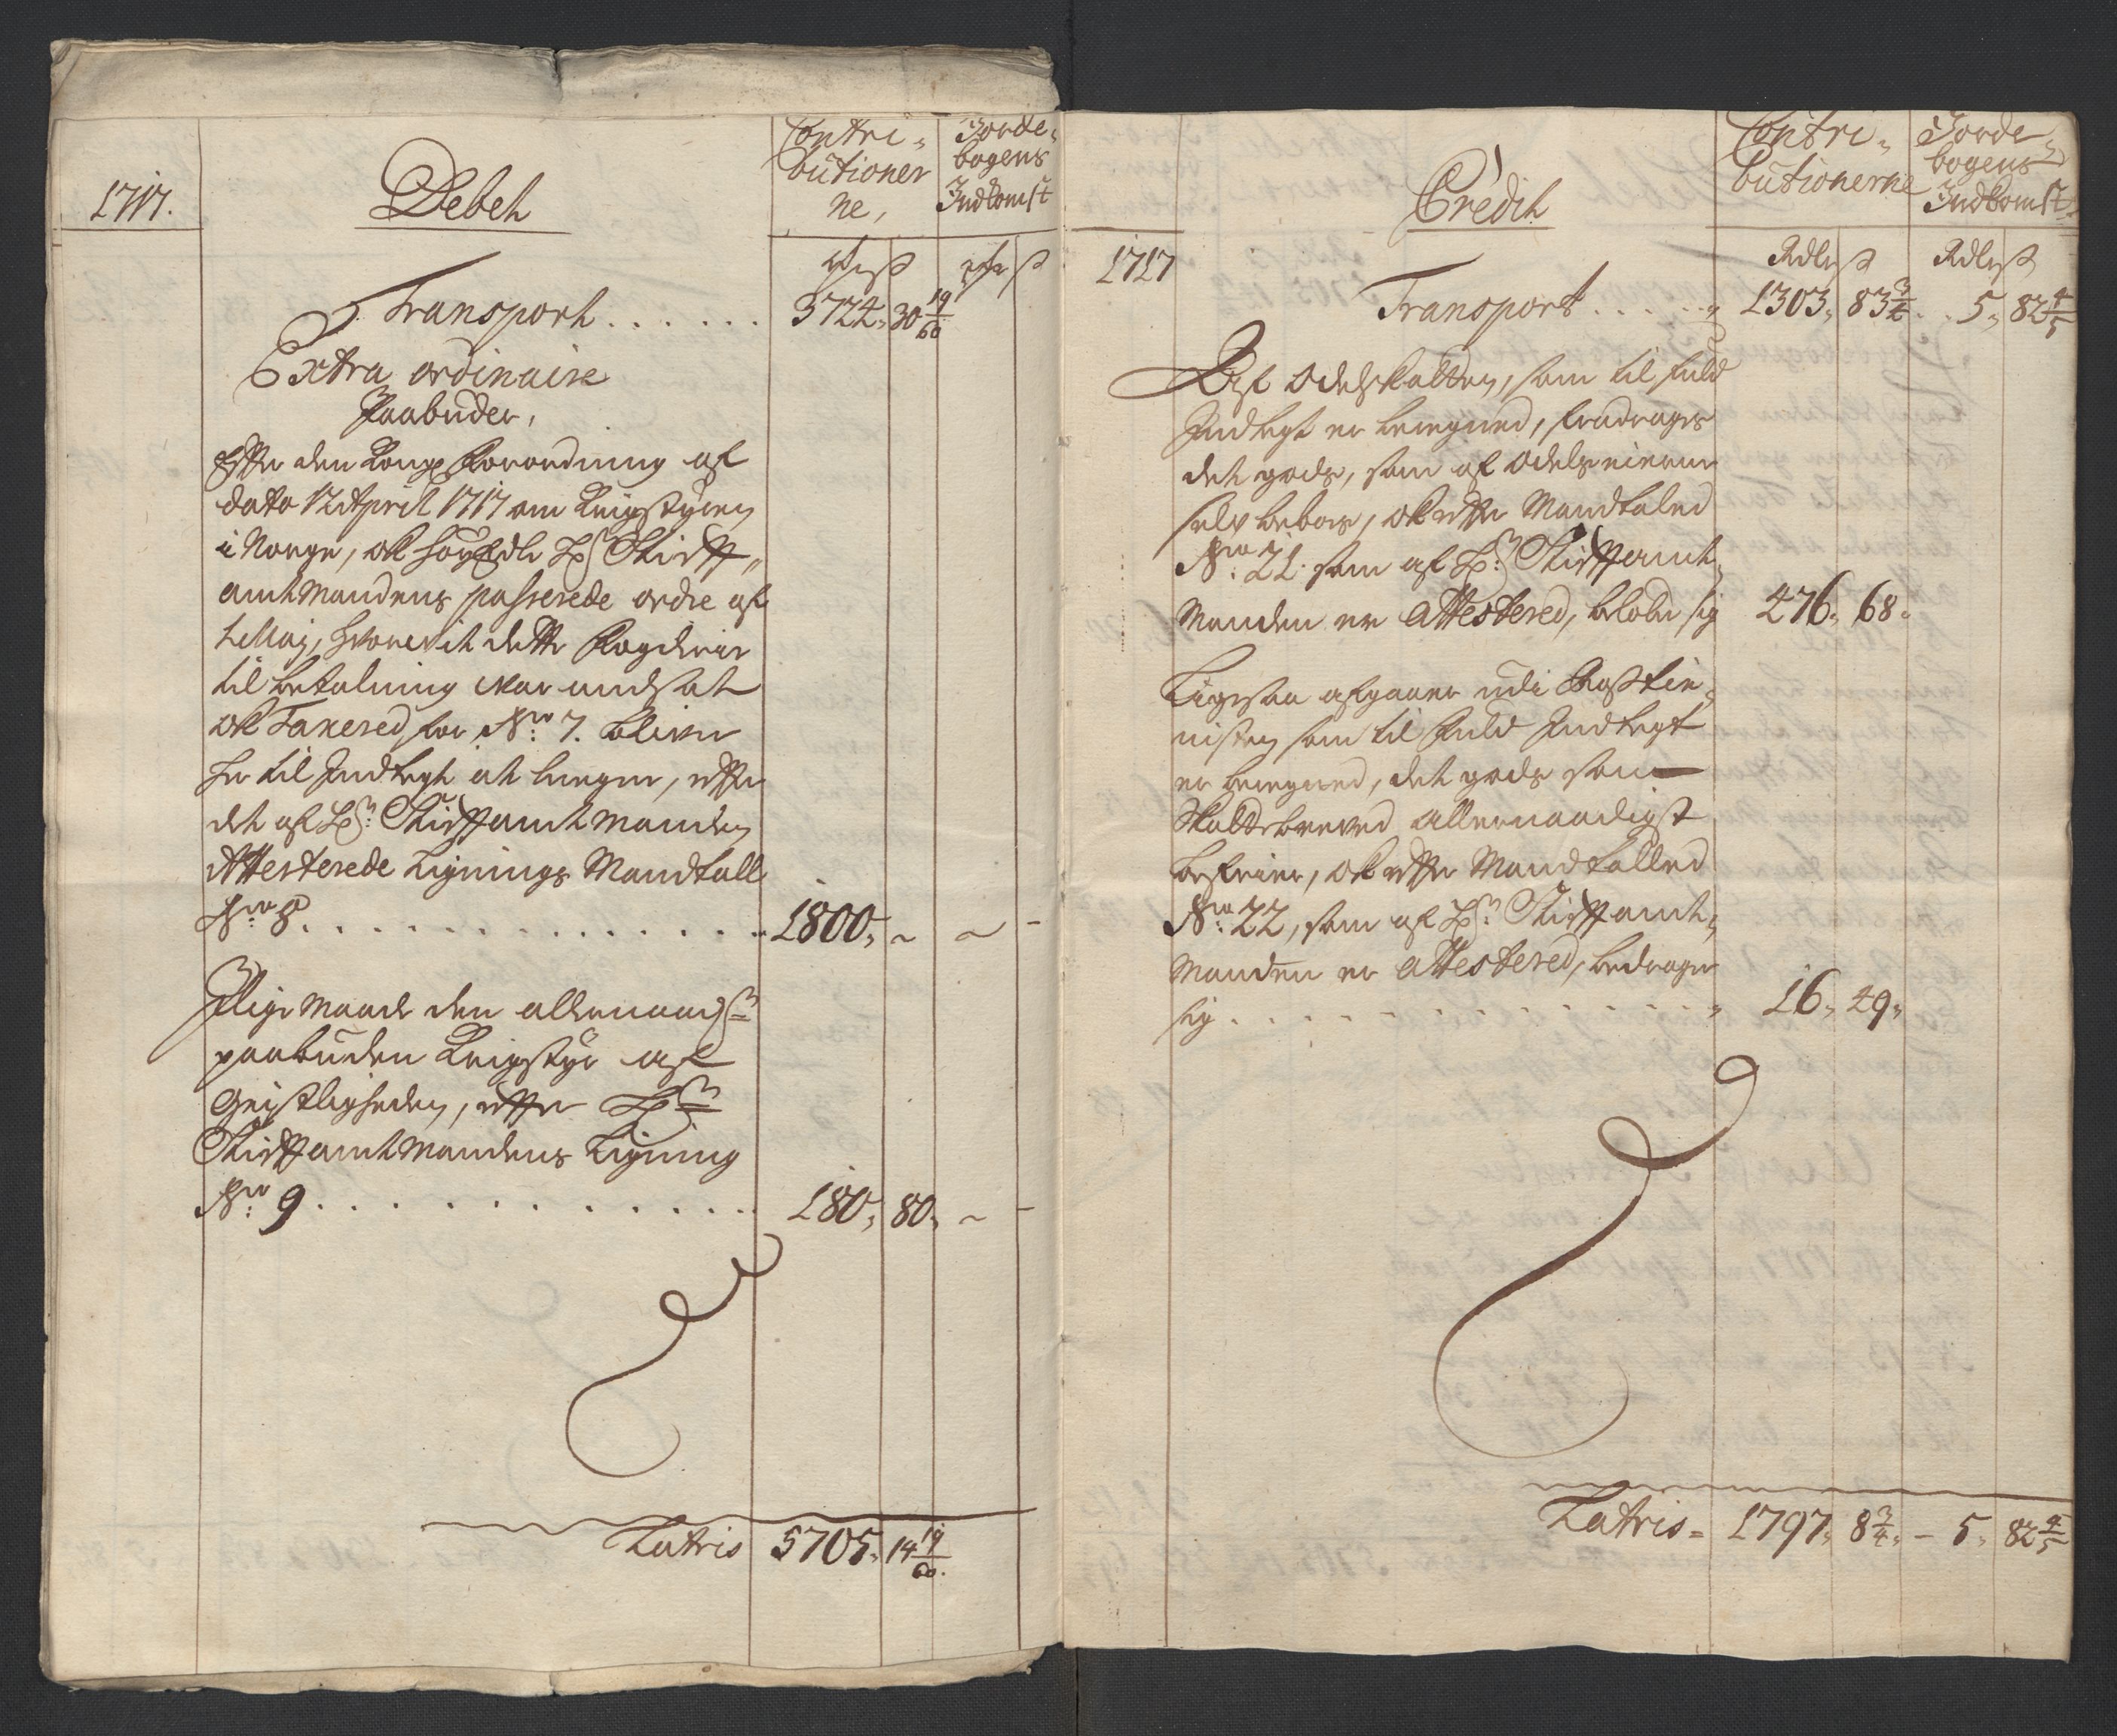 1717.
Debet
Contri-
butioner
ne,
Jorde-
bogens
Indkomst
Rdr ß
Rdr ß
Transport . . . . . . 3724, 30 19/60
Extra ordinaire
Paabuder,
Efter den Kongl Forordning af
dato 12 April 1717 om Krigstyren
i Norge, ok HöyEdle Hr Stift-
amtmandens passerede ordre af
1 Maj, hvorvit dette Fogderie
til betalning var andsat
ok Taxered, for No: 7. bliver
her til Indtegt at beregne, efter
det af Hr: Stiftamtmanden
Attesterede Lignings Mandtall
No 8. . . . . . . . . . . . . 1800, ~ ~ -
J lige maade den allernaadst
paabuden Krigstyr af
Geistligheden, efter Hr
Stiftamtmandens Ligning
No: 9 . . . . . . . . . . . . 180, 80, ~ -
Latris 5705, 14 19/60.
1717
Credit
Contri-
butionerne
Jorde-
bogens
Indkomst
Rdlr ß
Rdlr ß
Transport . . . . . 1303, 83 3/4 . . 5, 82 4/5
Af Odelskatten, som til fuld
Indtegt er beregned, fradrages
det gods, som af Odelseierne
selv beboes, ok efter Mandtaled
No: 21. som af Hr: Stiftamt-
manden er attestered, beløber sig 476, 68.
Ligesaa afgaaer udi Rostie-
nisten som til fuld Indtegt
er beregned, det gods som
Skattebreved allernaadigst
befrier, ok efter Mandtalled
No: 22, som af Hr: Stiftamt-
manden er attestered, bedrager
sig . . . . . . . . . . . . . 16, 49,
Latris = 1797, 8 3/4, - 5, 82 4/5